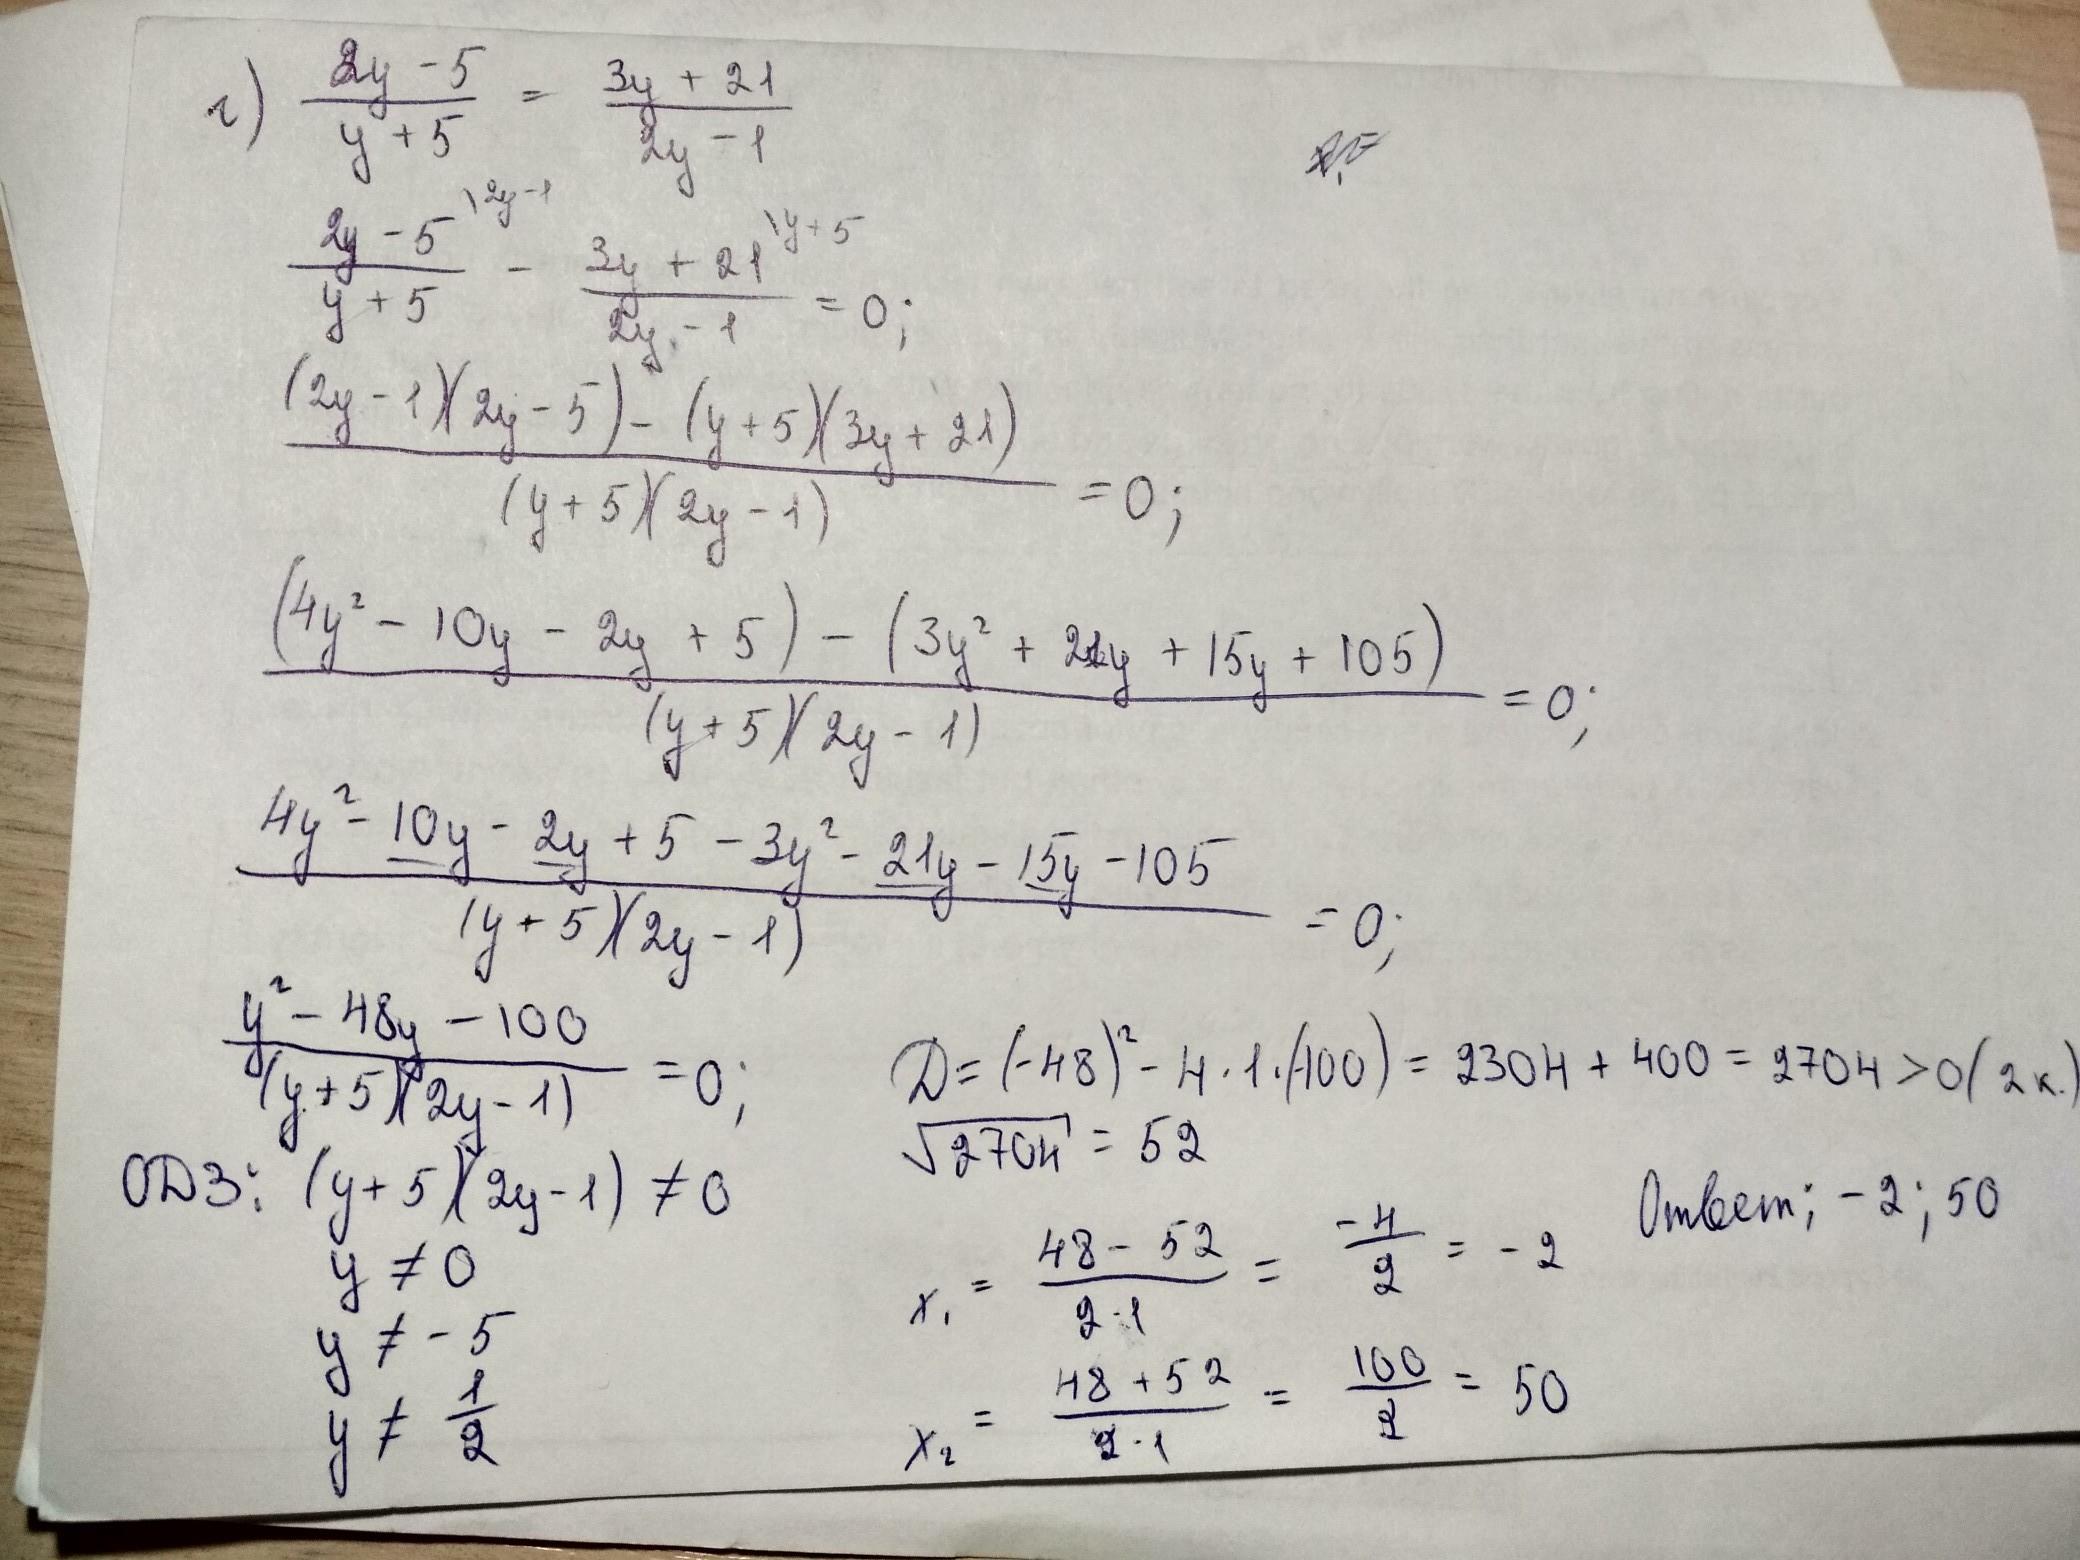 г) (2y - 5)/(y + 5) = (3y + 21)/(2y - 1)
(2y - 5)/(y + 5) \2y - 1 - (3y + 21)/(2y - 1) \y + 5 = 0;
((2y - 1)(2y - 5) - (y + 5)(3y + 21))/((y + 5)(2y - 1)) = 0;
((4y² - 10y - 2y + 5) - (3y² + 21y + 15y + 105))/((y + 5)(2y - 1)) = 0;
(4y² - 10y - 2y + 5 - 3y² - 21y - 15y - 105)/((y + 5)(2y - 1)) = 0;
(y² - 48y - 100)/((y + 5)(2y - 1)) = 0;
ОДЗ: (y + 5)(2y - 1) ≠ 0
y ≠ 0
y ≠ - 5
y ≠ 1/2
D = (-48)² - 4 · 1 · (-100) = 2304 + 400 = 2704 > 0 (2 к.)
√2704 = 52
x₁ = (48 - 52)/(2 · 1) = -4/2 = - 2
x₂ = (48 + 52)/(2 · 1) = 100/2 = 50
Ответ: - 2; 50